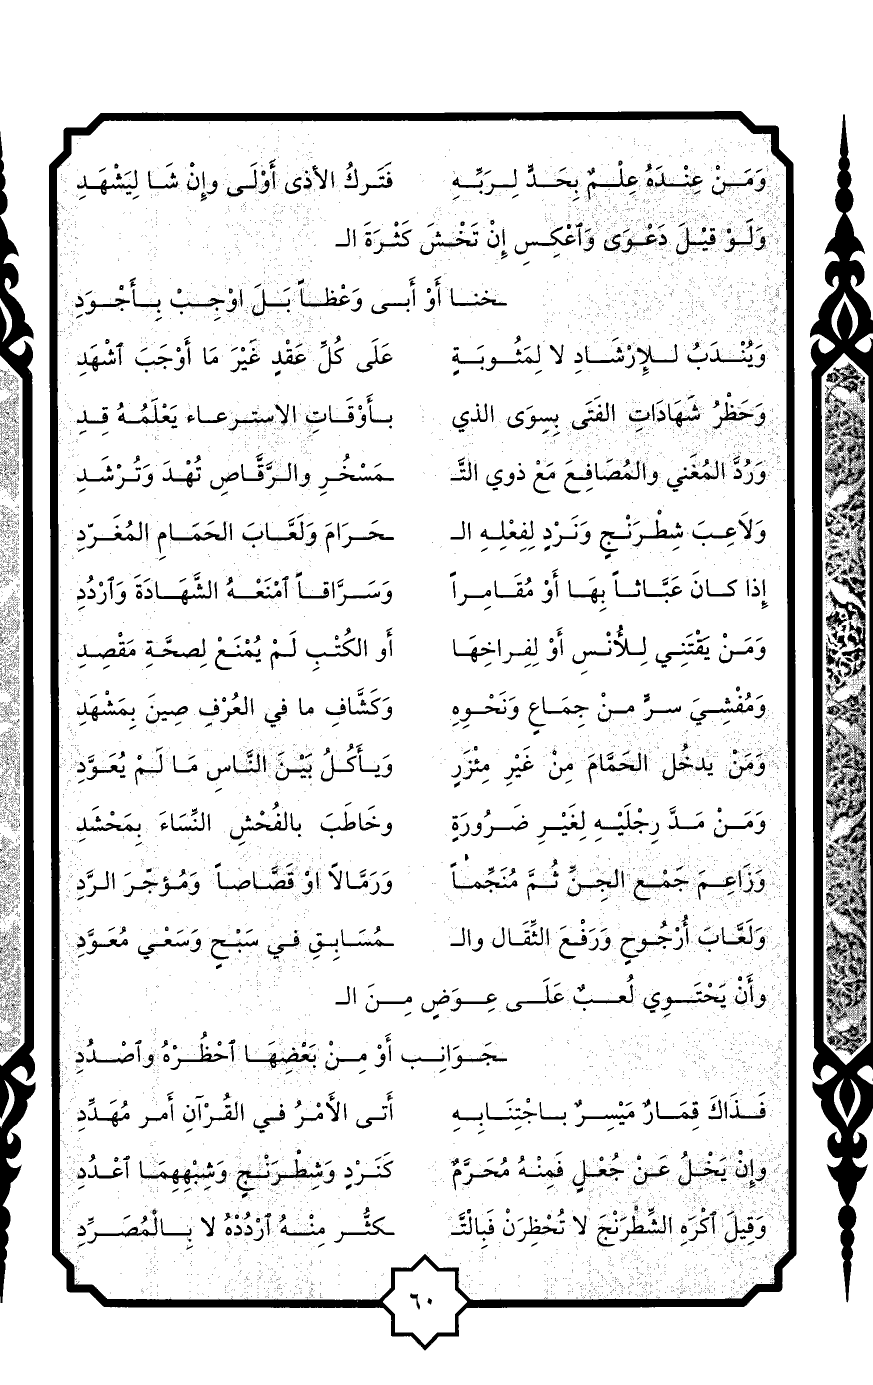 وَمَــنْ عِنْــدَهُ عِلْــمٌ بِحَــدٍّ لِــرَبِّــهِ فَتَـركُ الأذى أَوْلَـى وإِنْ شَـا لِيَشْهَـدِ
وَلَــوْ قيْــلَ دَعْــوَى وَٱعْكِــسِ إِنْ تَخْــشَ كَثْــرَةَ الـ
ـخنــا أَوْ أَبــى وَعْظــاً بَــلَ اوْجِــبْ بِــأَجْــوَدِ
وَيُنْــدَبُ لــلإِرْشَــادِ لا لِمَثُــوبَــةٍ عَلَى كُلِّ عَقْدٍ غَيْرَ مَا أَوْجَبَ ٱشْهَدِ
وَحَظْرُ شَهَادَاتِ الفَتَى بِسِوَى الذي بــأَوْقَــاتِ الاستــرعــاء يَعْلَمُــهُ قِــدِ
وَرُدَّ المُغَني والمُصَافِعَ مَعْ ذوي التَّـ ـمَسْخُـرِ والـرَّقَّـاصِ تُهْـدَ وَتُـرْشَـدِ
وَلاَعِـبَ شِطْـرَنْـجٍ وَنَـرْدٍ لِفِعْلِـهِ الـ ـحَــرَامَ وَلَعَّــابَ الحَمَــامِ المُغَــرّدِ
إِذا كــانَ عَبَّــاثــاً بِهَــا أَوْ مُقَــامِــراً وَسَــرَّاقــاً ٱمْنَعْــهُ الشَّهَــادَةَ وَٱرْدُدِ
وَمَــنْ يَقْتَنِي لِــلْأُنْــسِ أَوْ لِفِــراخِهَــا أَو الكُتْـبِ لَـمْ يُمْنَـعْ لِصحَّـةِ مَقْصِـدِ
وَمُفْشِـيَ سـرٍّ مـنْ جِمَـاعٍ وَنَحْـوِهِ وَكَشَّافِ ما في العُرْفِ صِينَ بِمَشْهَدِ
وَمَنْ يدخُل الحَمَّامَ مِنْ غَيْرِ مِئْزَرٍ وَيـأكُـلُ بَيْـنَ النَّـاسِ مَـا لَـمْ يُعَـوَّدِ
وَمَــنْ مَــدَّ رِجْلَيْــهِ لِغَيْــرِ ضَــرُورَةٍ وخَاطَبَ بالفُحْشِ النِّسَاءَ بِمَحْشَدِ
وَزَاعِــمَ جَمْــعِ الجِــنِّ ثُــمَّ مُنَجِّمــاً وَرَمَّـالاً اوْ قَصَّـاصـاً وَمُـؤجّـرَ الـرَّدِ
وَلَعَّـابَ أُرْجُـوحٍ وَرَفْـعَ الثِّقَـال والـ ـمُسَــابِــقِ فــي سَبْــحٍ وَسَعْــي مُعَــوَّدِ
وأَنْ يَحْتَــوِي لُعــبٌ عَلَــى عِــوَضٍ مِــنَ الـ
ـجَــوَانِــب أَوْ مِــنْ بَعْضِهَــا ٱحْظُــرْهُ وٱصْــدُدِ
فَــذَاكَ قِمَــارٌ مَيْسِــرٌ بــاجْتِنَــابِــهِ أَتـى الأَمْـرُ فـي القُـرْآنِ أَمـر مُهَـدِّدِ
وإِنْ يَخْـلُ عَـنْ جُعْـلٍ فَمِنْـهُ مُحَـرَّمٌ كَنَـرْدٍ وَشِطْـرَنْـجٍ وَشِبْهِهِمَـا ٱعْـدُدِ
وَقِيلَ ٱكْرَهِ الشِّطْرَنْجَ لا تُحْظِرَنْ فَبِالتَّـ ـكثُّــر مِنْــهُ ٱرْدُدْهُ لا بِــالْمُصَــرِّدِ
٦٠